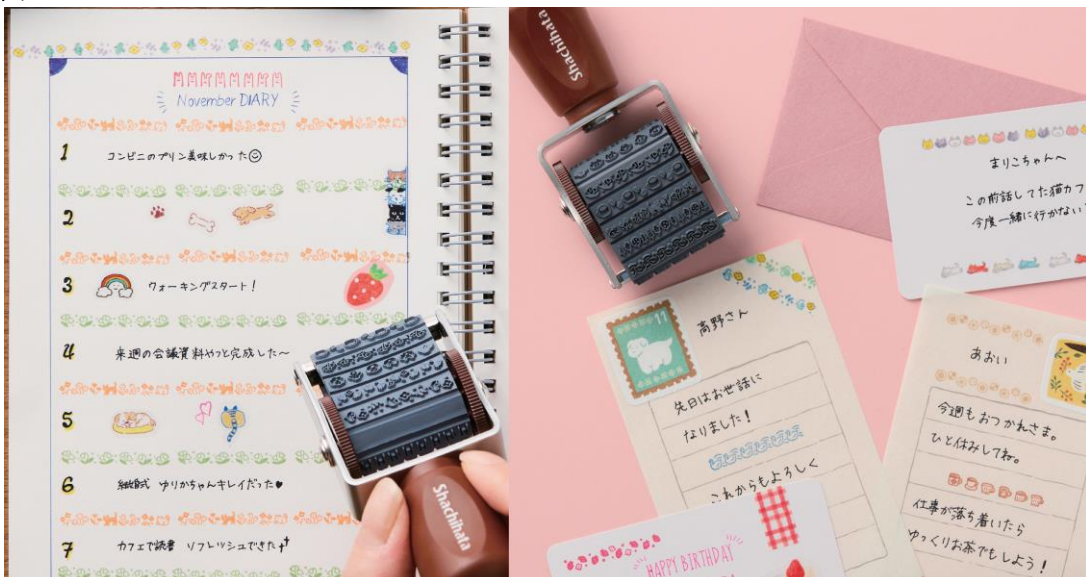 November DIARY
1 コンビニのプリン美味しかった☺
2
3 ウォーキングスタート!
4 来週の会議資料やっと完成した〜
5
6 結婚式 ゆりかちゃんキレイだった♥
7 カフェで読書 リフレッシュできた
Shachihata
Shachihata
まりこちゃんへ
この前話してた猫カフ
今度一緒に行かない?
11
高野さん
先日はお世話に
なりました!
これからもよろしく
HAPPY BIRTHDAY
あおい
今週もおつかれさま。
ひと休みしてね。
仕事が落ち着いたら
ゆっくりお茶でもしよう!